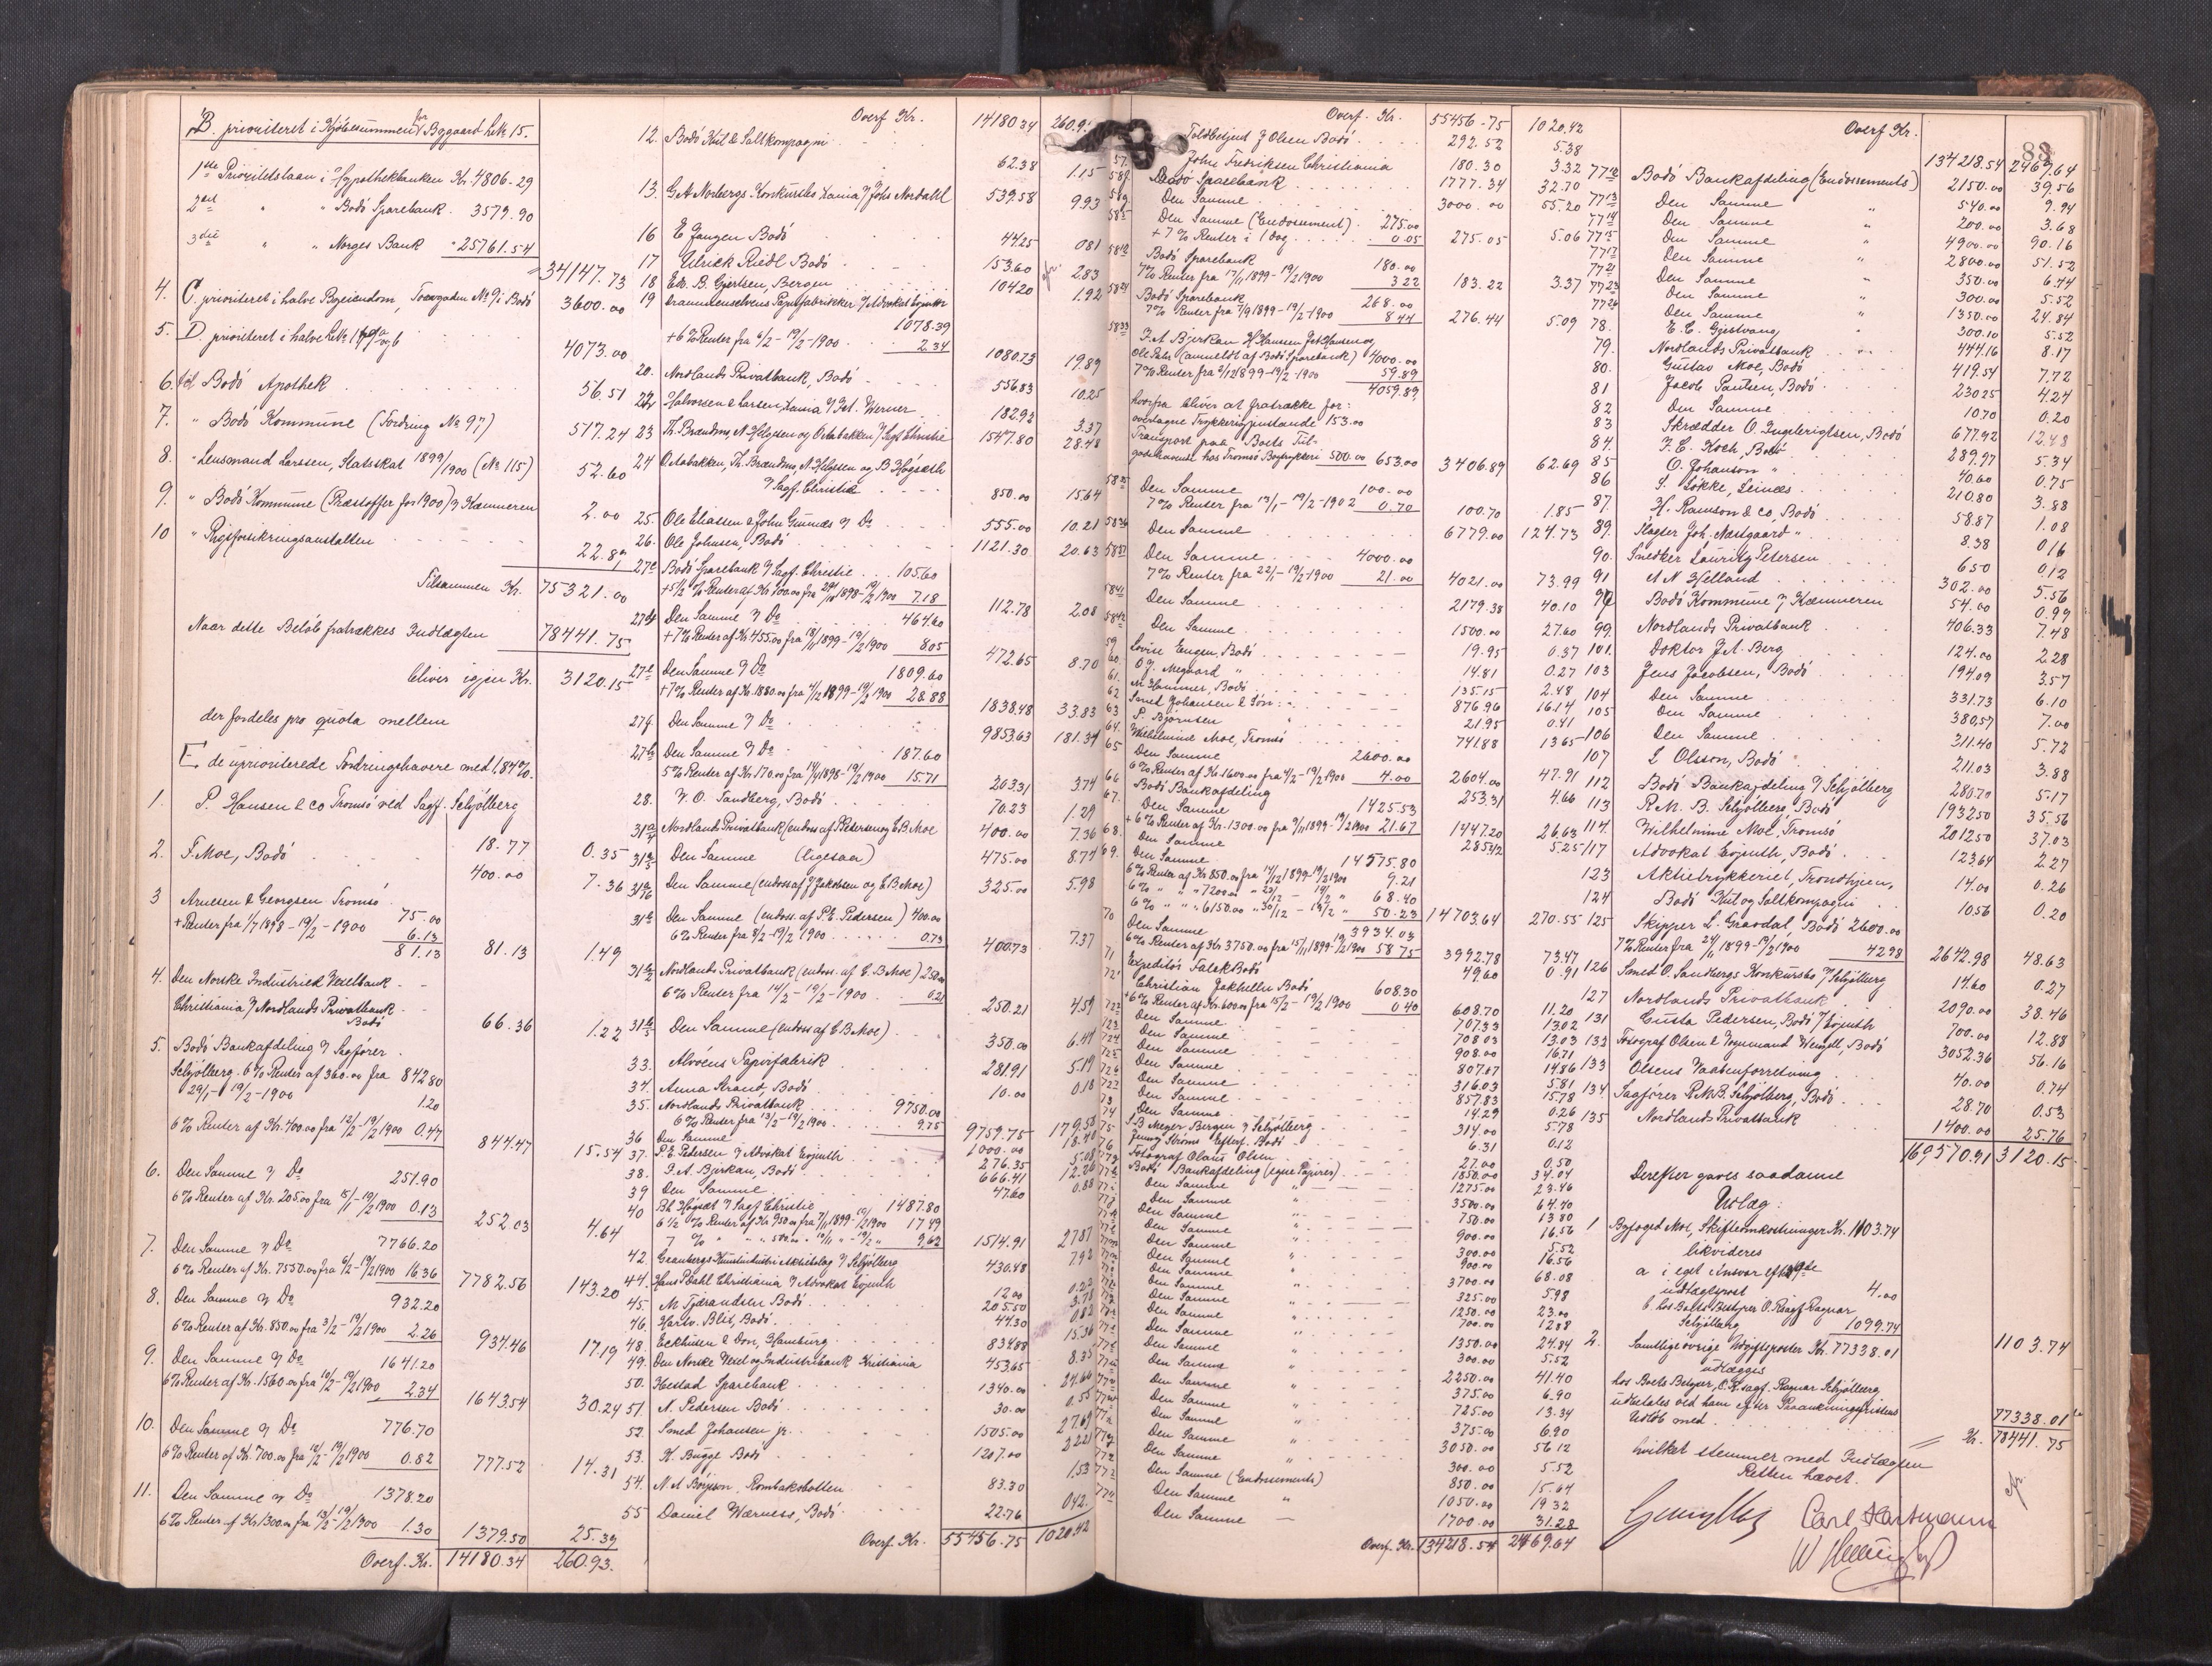 B. prioriteret i Kjøbesummen for Bygaard Lnr. 15.
1ste Prioritetslaan i Hypothekbanken Kr. 4806-29
2det " " Bodö Sparebank. 3579.90
3die " " Norges Bank " 25761.54
34147.73
4. C. prioriteret i halve Byeiendom, No 9 i Bodö 3600.00
5. D. prioriteret i halve 4073.00
6. til Bodö Apothek 56.51
7. " Bodö Kommune (Fordring No 97) 517.24
8. " Lensmand Larssen, Statsskat 1899/1900 (No 115) 52.60
9. " Bodö Kommune ( for 1900) v/ Kæmneren 2.00
10 " Rigsforsikringsanstalten 22.89
Tilsammen Kr. 75321.00
Naar dette Beløb fratrækkes Indtægten 78441.75
bliver igjen Kr. 3120.15
der fordeles pro quota mellem
E. de uprioriterede Fordringshavere med 1,84%.
1. P. Hansen & Co Tromsö ved Sagf. Schjölberg 18.77 0.35
2. F. Moe, Bodö 400.00 7.36
3 Arnesen & Georgsen Tromsö 75.00
+ Renter fra 1/7 1898 - 19/2 - 1900 6.13
81.13 81.13 1.49
4. Den Norske Industri & Vexelbank
Christiania v/ Nordlands Privatbank
Bodö 66.36 1.22
5. Bodö Bankafdeling v/ Sagfører
Schjölberg. 6% Renter af 360.00 fra 842.80
29/1 - 19/2 - 1900 1.20
6% Renter af Kr. 400.00 fra 12/2 - 19/2 1900 0.47 844.47 15.54
6. Den Samme v/ Do 251.90
6% Renter af Kr. 205.00 fra 15/1 - 19/2 1900 0.13 252.03 4.64
7. Den Samme v/ Do 7766.20
6% Renter af Kr. 7550.00 fra 6/2 - 19/2 1900 16.36 7782.56 143.20
8. Den Samme v/ Do 932.20
6% Renter af Kr. 850.00 fra 3/2 - 19/2 1900 2.26 934.46 17.19
9. Den Samme v/ Do 1641.20
6% Renter af Kr. 1560.00 fra 10/2 - 19/2 1900 2.34 1643.54 30.24
10. Den Samme v/ Do 776.70
6% Renter af Kr. 700.00 fra 12/2 - 19/2 1900 0.82 777.52 14.31
11. Den Samme v/ Do 1378.20
6% Renter af Kr. 1300.00 fra 13/2 - 19/2 1900 1.30 1379.50 25.39
Overf. Kr. 14180.34 260.93.
Overf Kr. 14180.34 260.93
12. Bodö Kul & Saltkompagni 62.38 1.15
13. G. A. Norbergs Konkursbo, Rania v/ Johs Nordahl 539.58 9.93
16 E Jangen Bodö 44.25 0.81
17 Ulrick Riedl Bodö 153.60 2.83
18 Elk. B. Gjertsen, Bergen 104.20 1.92
19 Drammenselvens Papirfabrikker v/ Advokat Evjenth 1078.39
+ 6% Renter fra 6/2 - 19/2 - 1900 2.34 1080.73 19.89
20. Nordlands Privatbank, Bodö 556.83 10.25
22. Halvorsen & Larsen, Rania v/ Fst. Werner 182.92 3.37
23 Th. Brændmo, N. Helgesen og Octobakken v/ Sagf. Christie 1547.80 28.48
24 Octobakken, Th. Brændmo, N. Helgesen og B Høgsæth
v/ Sagf. Christie 850.00 15.64
25. Ole Eliassen & John Gunnæs v/ Do 555.00 10.21
26. Ole Johnsen, Bodö 1121.30 20.63
27c Bodö Sparebank v/ Sagf. Christie 105.60
+ 5½% Renter af Kr. 100.00 fra 29/10 1898 - 19/2 1900 7.18 112.78 2.08
27d. Den Samme v/ Do 464.60
+ 7% Renter af Kr. 455.00 fra 18/11 1899 - 19/2 1900 8.05 472.65 8.70
27e Den Samme v/ Do 1809.60
+ 7% Renter af Kr. 1880.00 fra 4/12 1899 - 19/2 1900 28.88 1838.48 33.83
27g. Den Samme v/ Do 9853.63 181.34
27h Den Samme v/ Do 187.60
5% Renter af Kr. 170.00 fra 14/4 1898 - 19/2 1900 15.71 203.31 3.74
28. V. O. Sandberg, Bodö 70.23 1.29
31a Nordlands Privatbank (endoss af P. Pedersen og E B Moe 400.00 7.36
31 Den Samme (ligesaa) 475.00 8.74
31 Den Samme (endoss af J. Jakobsen og E B Moe) 325.00 5.98
31 Den Samme (endoss. af P.E. Pedersen) 400.00
6% Renter fra 8/2 - 19/2 1900 0.73 400.73 7.37
31 Nordlands Privatbank (endoss. af E. B Moe) 250.00
6% Renter fra 14/2 - 19/2 - 1900 0.21 250.21 4.59
31 Den Samme (endoss af E B Moe) 350.00 6.44
33. Alvöens Papirfabrik 281.91 5.19
34. Anna Strand, Bodö 10.00 0.18
35. Nordlands Privatbank 9750.00
6% Renter fra 13/2 - 19/2 - 1900 9.75 9759.75 179.58
36 Den Samme 1000.00 18.40
37. P.E. Pedersen v/ Advokat Evjenth 276.35 5.08
38. F. A. Bjirkan, Bodö 666.41 12.26
39 Den Samme 47.60 0.88
40 B. Høgsæt v/ Sagf Christie 1487.80
6½% Renter af Kr. 950.00 fra 7/11 1899 - 19/2 1900 17.49
7% " " " 500.00 " 10/11 " - 19/2 " 9.62 1514.91 27.87
42. Granbergs Kunstindustri Aktieselag v/ Schjölberg 430.48 7.92
44. Hans P. Dahl Christiania v/ Advokat Evjenth 12.00 0.22
45. M Tjærandsen Bodö 205.50 3.78
46. Hartv. Blix, Bodö 44.30 0.82
48. Eekhusen & Dorn, Hamburg 834.88 15.36
49. Den Norske Vexel og Industribank Kristiania 453.65 8.35
50. Hestad Sparebank 1340.00 24.66
51. N. Pedersen Bodö 30.00 0.55
52. Smed Johansen jr. 1505.00 27.69
53. K. Bugge Bodö 1207.00 22.21
54. N. A. Börjeson, Rombaksbotten 83.30 1.53
55 Daniel Wærness, Bodö 22.76 0.42.
Overf. Kr. 55456.75 1020.42
Overf. Kr. 55456-75 1020.42
Toldbetjent J Olsen Bodö 292.52 5.38
57. John Fredriksen Christiania 180.30 3.32
58 Bodö Sparebank 1777.34 32.70
58 Den Samme 3000.00 55.20
58 Den Samme (Endossement) 275.00
+ 7% Renter i 1 dag 0.05 275.05 5.06
58 Bodö Sparebank 180.00
7% Renter fra 17/11 1899 - 19/2 1900 3.22 183.22 3.37
58 Bodö Sparebank 268.00
7% Renter fra 7/9 1899 - 19/2 - 1900 8.44 276.44 5.09
58 F. A Bjirkan H. Hansen Jak Hansen og
Ole Peter (anmeldt af Bodö Sparebank) 4000.00
7% Renter fra 2/12 1899 - 19/2 - 1900 59.89
4059.89
hvorfra bliver at fratrække for:
overtagne Trykkerigjenstande 153.00
Transport paa Boets Til-
godehavende hos Tromsö Bogtrykkeri 500.00 653.00 3406.89 62.69
58 Den Samme 100.00
7% Renter fra 13/1 - 19/2 - 1902 0.70 100.70 1.85
58 Den Samme 6779.00 124.73
58 Den Samme 4000.00
7% Renter fra 22/1 - 19/2 - 1900 21.00 4021.00 73.99
58 Den Samme 2179.38 40.10
58 Den Samme 1500.00 27.60
59 Lovise Engen, Bodö 19.95 0.37
60. O. J. Megaard " 14.81 0.27
61. M Hammer, Bodö 135.15 2.48
62 Smed Johansen & Sön 876.96 16.14
63 P. Björnsen 21.95 0.41
64. Wilhelmine Moe, Tromsö 741.88 13.65
65 Den Samme 2600.00
6% Renter af Kr. 1600.00 fra 4/2 - 19/2 1900 4.00 2604.00 47.91
66 Bodö Bankafdeling 253.31 4.66
67. Den Samme 1425.53
+ 6% Renter af Kr. 1300.00 fra 9/11 1899 - 19/2 1900 21.67 1447.20 26.63
68. Den Samme 285.42 5.25
69. Den Samme 14575.80
6% Renter af Kr. 850.00 fra 14/12 1899 - 19/2 1900 9.21
6% " " " 7200.00 " 23/12 - 19/2 " 68.40
6% " " " 6150.00 " 30/12 - 19/2 " 50.23 14703.64 270.55
70 Den Samme 3934.03
6% Renter af Kr 3750.00 fra 15/11 1899 - 19/2 1900 58.75 3992.78 73.47
71 Expeditör Falck Bodö 49.60 0.91
72 Christian Jakhelln Bodö 608.30
+ 6% Renter af Kr. 600.00 fra 15/2 - 19/2 1900 0.40 608.70 11.20
72 Den Samme 707.33 13.02
Den Samme 708.03 13.03
Den Samme 908.00 16.71
Den Samme 807.67 14.86
Den Samme 316.03 5.81
73 Den Samme 857.83 15.78
74 Den Samme 14.29 0.26
75 S. B Meyer Bergen v/ Schjölberg 314.00 5.78
76 Jenny Ströms Efterf. Bodö 6.31 0.12
Fotograf Olaus Olsen 27.00 0.50
77 Bodö Bankafdeling (egne Papirer) 1850.00 34.04
Den Samme " 1275.00 23.46
Den Samme " 3500.00 64.40
Den Samme " 750.00 13.80
Den Samme " 900.00 16.56
Den Samme " 300.00 5.52
Den Samme " 900.00 16.56
Den Samme " 3700.00 68.08
Den Samme " 325.00 5.98
Den Samme " 1250.00 23.00
Den Samme " 700.00 12.88
Den Samme " 1350.00 24.84
Den Samme " 300.00 5.52
Den Samme " 2250.00 41.40
Den Samme " 375.00 6.90
Den Samme " 725.00 13.34
Den Samme " 375.00 6.90
Den Samme " 3050.00 56.12
Den Samme " 300.00 5.52
Den Samme (Endossements) 850.00 15.64
Den Samme " 1050.00 19.32
Den Samme 1700.00 31.28
Overf. Kr. 134218.54 2469.64
88
Overf Kr. 134218.54 2469.64
77 12 Bodö Bankafdeling (Endossements) 2150.00 39.56
77 13 Den Samme " 540.00 9.94
77 14 Den Samme " 200.00 3.68
77 15 Den Samme " 4900.00 90.16
77 17 Den Samme " 2800.00 51.52
77 21 Den Samme 350.00 6.44
77 23 Den Samme 300.00 5.52
77 24 Den Samme 1350.00 24.84
78. E. C. Gjestvang 300.10 5.52
79. Nordlands Privatbank 444.16 8.17
80. Gustav Moe, Bodö 419.54 7.72
81 Jacob Paulsen, Bodö 230.25 4.24
82 Den Samme 10.70 0.20
83 Skrædder O. Ingebrigtsen, Bodö 677.92 12.48
84. F. C. Koch, Bodö 289.97 5.34
85 O. Johanson " 40.60 0.75
86 S. Løkke, Leinæs 210.80 3.88
87. H. Ramson & Co, Bodö 58.87 1.08
89. Slagter Joh. Næstgaard " 8.38 0.16
90. Snedker Lauritz Petersen 6.50 0.12
91 A N Helland 302.00 5.56
Bodö Kommune v/ Kæmneren 54.00 0.99
99. Nordlands Privatbank 406.33 7.48
101. Doktor J. A. Berg 124.00 2.28
103 Jens Jacobsen, Bodö 194.09 3.57
104 Den Samme 331.73 6.10
105 Den Samme 380.57 7.00
106 Den Samme 311.40 5.72
107 L Olsson, Bodö 211.03 3.88
112 Bodö Bankafdeling v/ Schjölberg 280.70 5.17
113 R. M. B. Schjölberg, Bodö 1932.50 35.56
114. Wilhelmine Moe, Tromsö 2012.50 37.03
117 Advokat Evjenth, Bodö 123.64 2.27
123 Aktietrykkeriet, Trondhjem, 14.00 0.26
124 Bodö Kul og Saltkompagni 10.56 0.20
125 Skipper L. Graadal, Bodö 2600.00
7% Renter fra 24/11 1899 - 19/2 1900 42.98 2642.98 48.63
126 Smed O. Sandbergs Konkursbo v/ Schjölberg 14.60 0.27
127 Nordlands Privatbank 2090.00 38.46
131 Gusta Pedersen, Bodö v/ Evjenth 700.00 12.88
132 Fotograf Olsen & Wengell, Bodö 3052.36 56.16
133 Olsens Vaabenforretning 40.00 0.74
134 Sagfører R. M. B. Schjölberg, Bodö 28.70 0.53
135 Nordlands Privatbank 1400.00 25.76
169570.91 3120.15
Derefter gaves saadanne
Udlæg:
1 Byfoged Moe, Skifteomkostninger Kr. 1103.74
likvideres
a i eget Ansvar efter
udtægtspost 4.00
b. hos Boets Bestyrer O.Rsagf. Ragnar
Schjölberg 1099.74 1103.74
2. Samtlige övrige Udgiftsposter Kr. 77338.01
udlægges
hos Boets Bestyrer, O.R.sagf. Ragnar Schjölberg
udbetales ved ham efter Paaankningsfristens
Udlöb med 77338.01
Kr. 78441.75
hvilket stemmer med Indtægten
Retten hævet.
Carl Hartmann